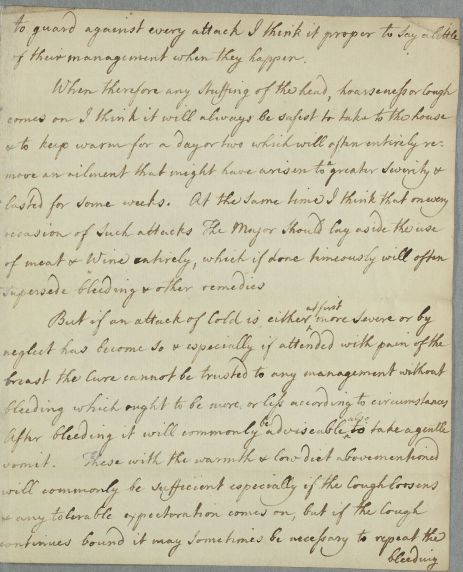 to guard against every attack I think it proper to say a little
of their management when they happen.
When therefore any stuffing of the head, hoarseness or Cough
comes on I think it will always be safest to take to the house
& to keep warm for a day or two which will often entirely re-
move an ailment that might have arisen to a greater severity &
lasted for some weeks. At the same time I think that on every
occasion of such attacks The Major should lay aside the use
of meat & Wine entirely, which if done timeously will often
supersede bleeding & other remedies
But if an attack of Cold is either at first more severe or by
neglect has become so & especially if attended with pain of the
breast the Cure cannot be trusted to any management without
bleeding which ought to be more or less according to circumstances
After bleeding it will commonly be adviseable also to take a gentle
vomit. These with the warmth & low diet abovementioned
will commonly be sufficient especially if the Cough loosens
& any tolerable expectoration comes on, but if the Cough
continues bound it may sometimes be necessary to repeat the
bleeding